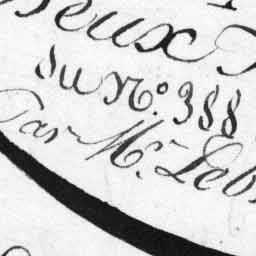 eux
du N.º 388
Par M.r Leb